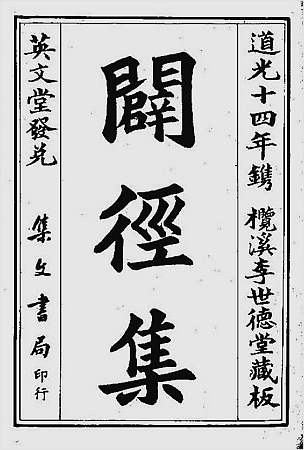 道光十四年鐫 欖溪李世德堂藏板
闢徑集
英文堂發兑 集文書局印行